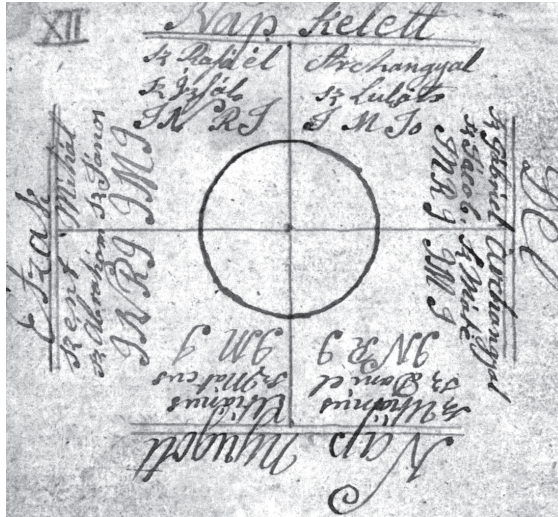 XII
Nap kelett
Sz Rafáél Archangyal
Sz Lukáts
IN RI I M Io
Dél
Sz Gábriel Archangyal
Sz Jácob Sz Márk
INRI IMI
Nap nyugott
Sz Daniel Sz Mateus
INRI IM I
Észak
Szent Mihál
Sz Abrahom Sz Janos
INRI IMI